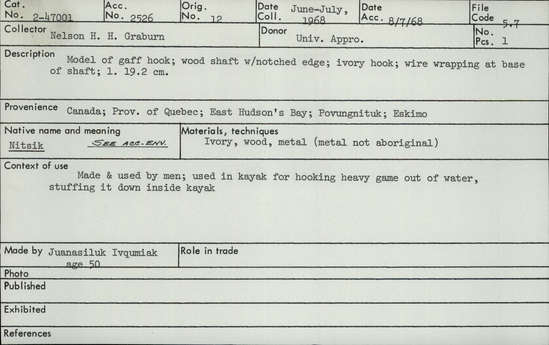 Cat. No. 2-47001 Acc. No. 2526 Orig. No. 12 Date Coll. June-July, 1968 Date Acc. 8/7/68 File Code 5.7
Collector Nelson H. H. Graburn Donor Univ. Appro. No. Pcs. 1
Description Model of gaff hook; wood shaft w/notched edge; ivory hook; wire wrapping at base
of shaft; l. 19.2 cm.
Provenience Canada; Prov. of Quebec; East Hudson's Bay; Povungnituk; Eskimo
Native name and meaning
Nitsik SEE ACC. ENV.
Materials, techniques
Ivory, wood, metal (metal not aboriginal)
Context of use
Made & used by men; used in kayak for hooking heavy game out of water,
stuffing it down inside kayak
Made by Juanasiluk Ivqumiak
age 50
Role in trade
Photo
Published
Exhibited
References